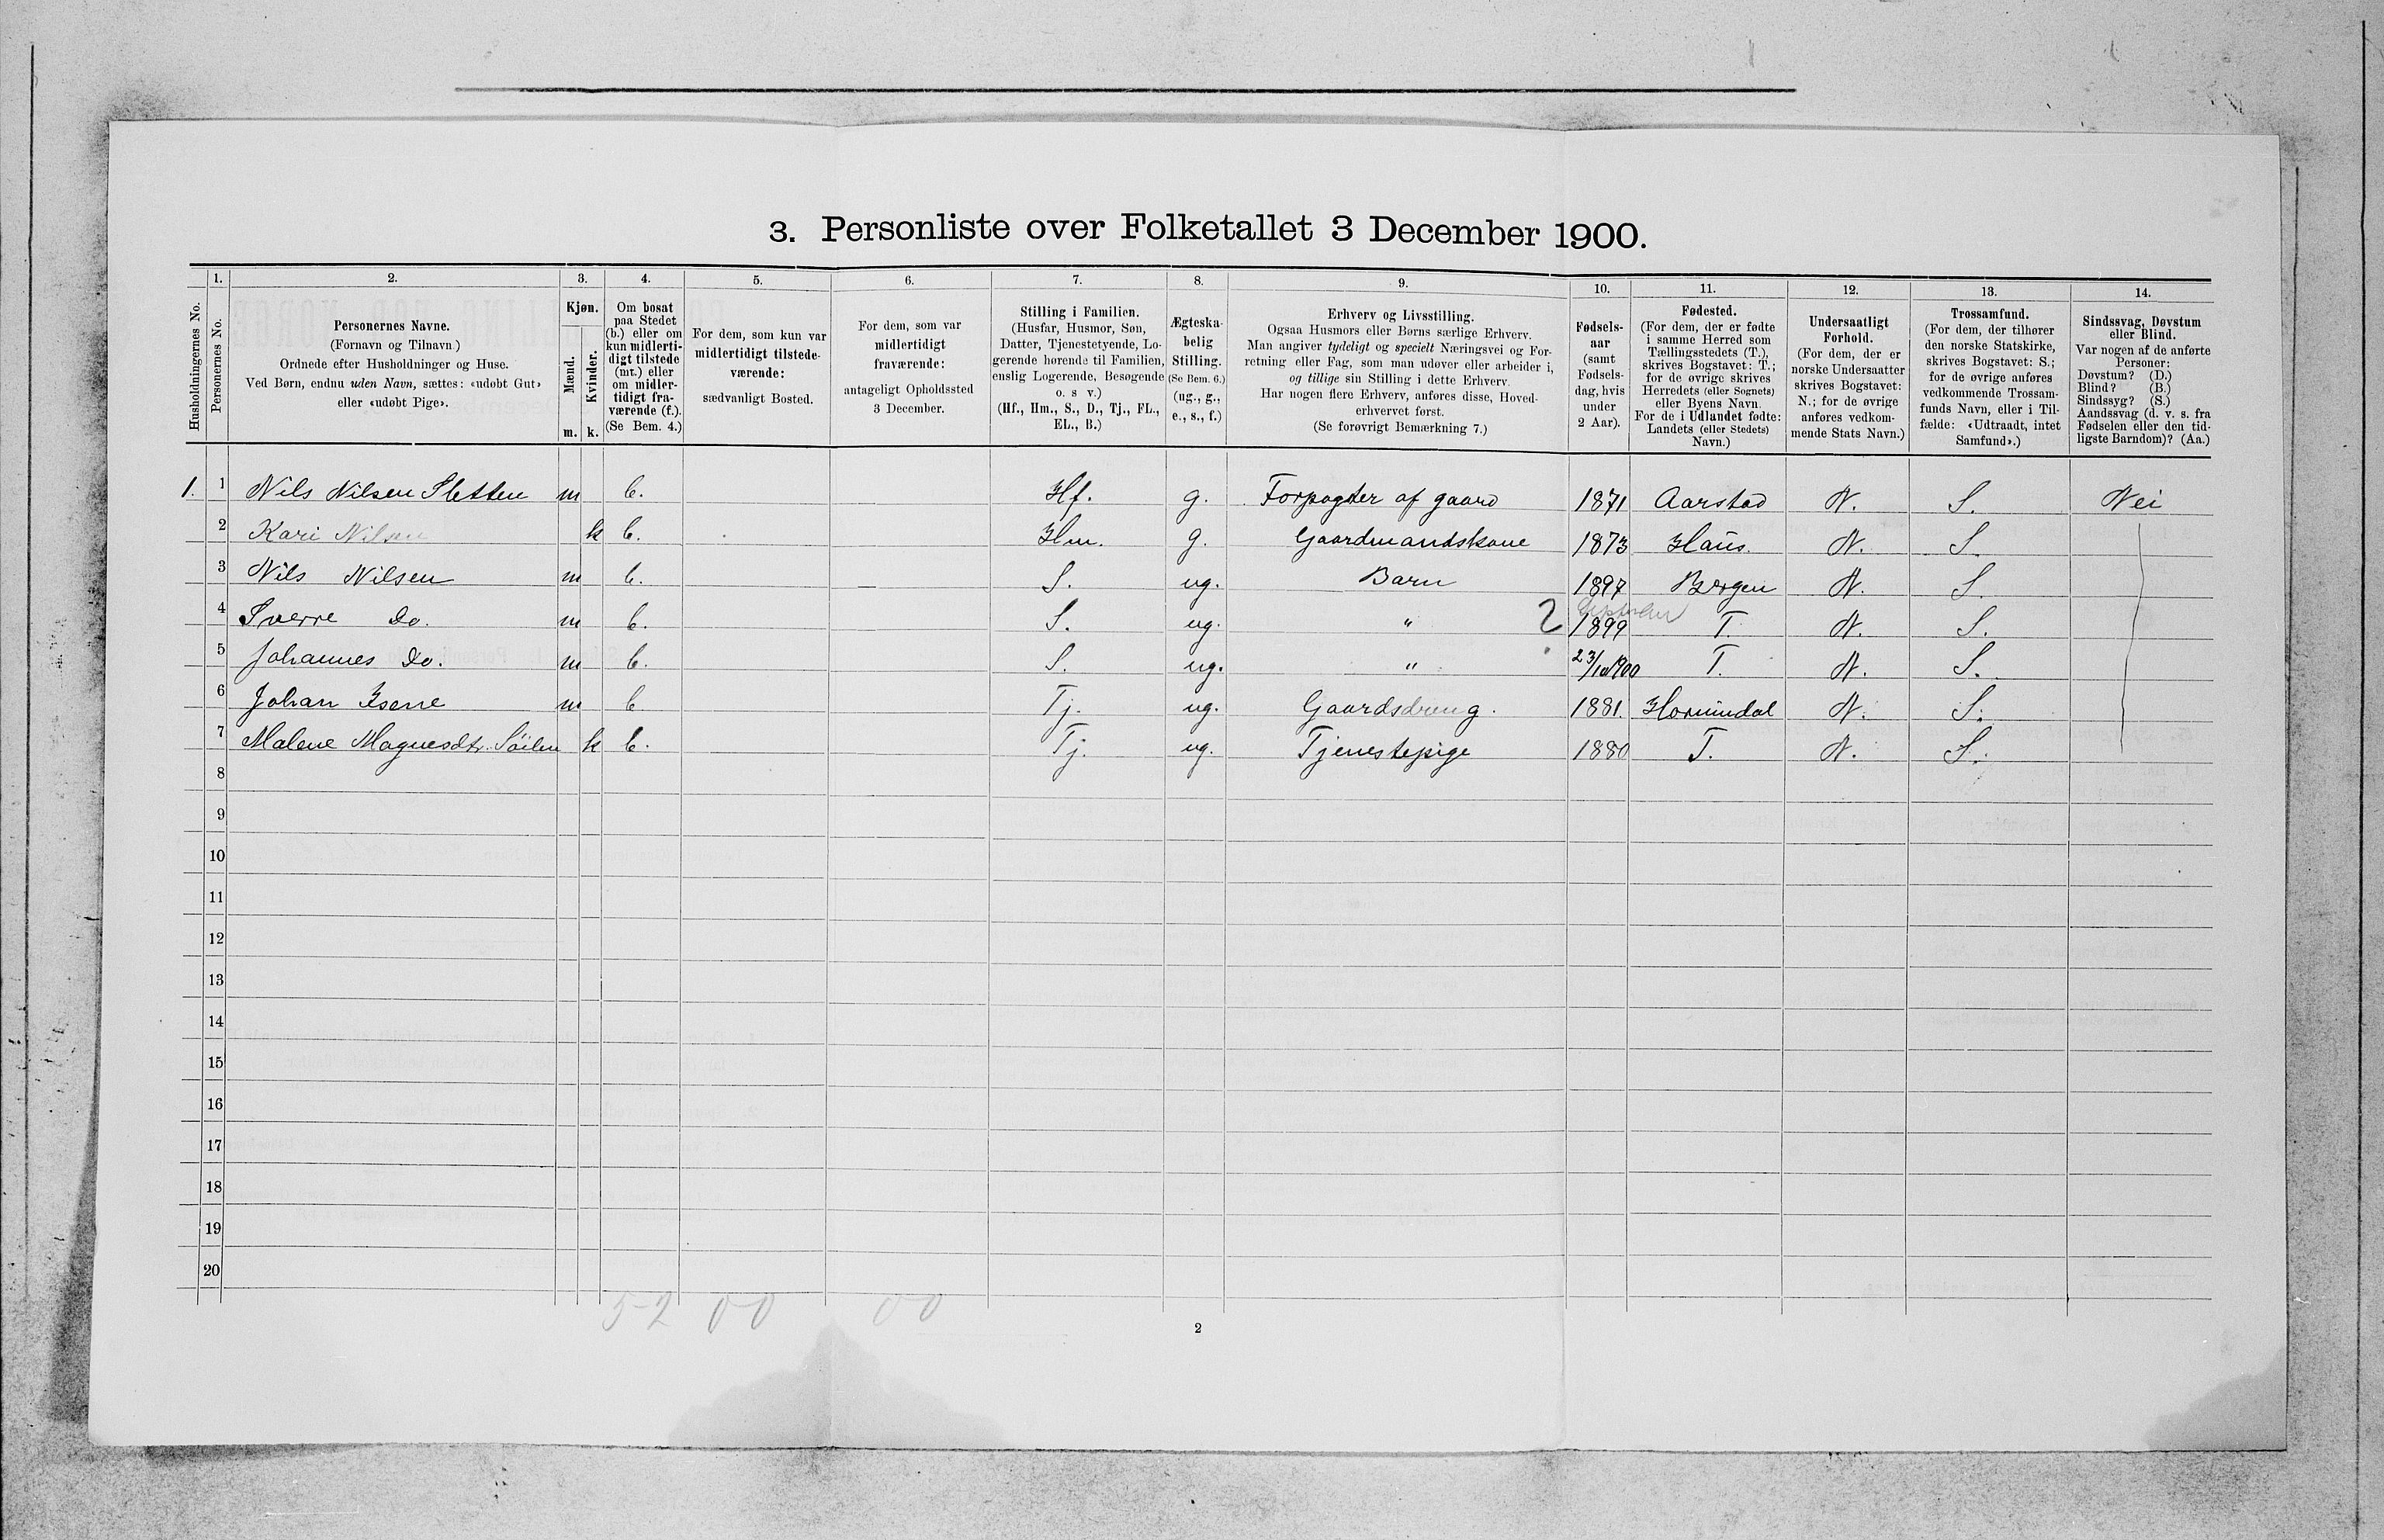 3. Personliste over Folketallet 3 December 1900.
Husholdningernes No.
1.
Personernes No.
2.
Personernes Navne.
(Fornavn og Tilnavn)
Ordnede efter Husholdninger og Huse.
Ved Børn, endnu uden Navn, sættes: «udøbt Gut»
eller «udøbt Pige».
3.
Kjøn.
Mænd.
Kvinder.
m. k.
4.
Om bosat
paa Stedet
(b.) eller om
kun midlerti-
digt tilstede
(mt.) eller
om midler-
tidigt fra-
værende (f.).
(Se Bem. 4.)
5.
For dem, som kun var
midlertidigt tilstede-
værende:
sædvanligt Bosted.
6.
For dem, som var
midlertidigt
fraværende:
antageligt Opholdssted
3 December.
7.
Stilling i Familien.
(Husfar, Husmor, Søn,
Datter, Tjenestetyende, Lo-
gerende hørende til Familien,
enslig Logerende, Besøgende
o. s v.)
(Hf., Hm., S., D., Tj., FL.,
EL., B.)
8.
Ægteska-
belig
Stilling.
(Se Bem. 6.)
(ug., g.,
e., s., f.)
9.
Erhverv og Livsstilling.
Ogsaa Husmors eller Børns særlige Erhverv.
Man angiver tydeligt og specielt Næringsvei og For-
retning eller Fag, som man udøver eller arbeider i,
og tillige sin Stilling i dette Erhverv.
Har nogen flere Erhverv, anføres disse, Hoved-
erhvervet først.
(Se forøvrigt Bemærkning 7.)
10.
Fødsels-
aar
(samt
Fødsels-
dag, hvis
under
2 Aar).
11.
Fødested.
(For dem, der er fødte
i samme Herred som
Tællingsstedets (T.),
skrives Bogstavet: T.;
for de øvrige skrives
Herredets (eller Sognets)
eller Byens Navn.
For de i Udlandet fødte:
Landets (eller Stedets)
Navn.)
12.
Undersaatligt
Forhold.
(For dem, der er
norske Undersaatter
skrives Bogstavet:
N.; for de øvrige
anføres vedkom-
mende Stats Navn.)
13.
Trossamfund.
(For dem, der tilhører
den norske Statskirke,
skrives Bogstavet: S.;
for de øvrige anføres
vedkommende Trossam-
funds Navn, eller i Til-
fælde: «Udtraadt, intet
Samfund».)
14.
Sindssvag, Døvstum
eller Blind.
Var nogen af de anførte
Personer:
Døvstum? (D.)
Blind? (B.)
Sindssyg? (S.)
Aandssvag (d. v. s. fra
Fødselen eller den tid-
ligste Barndom)? (Aa.)
1. 1 Nils Nilsen Sletten m b. Hf. g. Forpagter af gaard 1871 Aarstad N. S. Nei
2 Kari Nilsen k b. Hm. g. Gaardmandskone 1873 Haus. N. S.
3 Nils Nilsen m b. S. ug. Barn 1897 Bergen N. S.
4 Sverre Do. m b. S. ug. " 2 1899 T. N. S.
5 Johannes Do. m b. S. ug. " 23/10 1900 T. N. S.
6 Johan m b Tj. ug. Gaardsdreng. 1881. Hornindal N. S.
7 Malene Magnesdtr. k b. Tj. ug. Tjenestepige 1880 T. N. S.
8
9
10
11
12
13
14
15
16
17
18
19
20
5-2 0-0 0-0
2